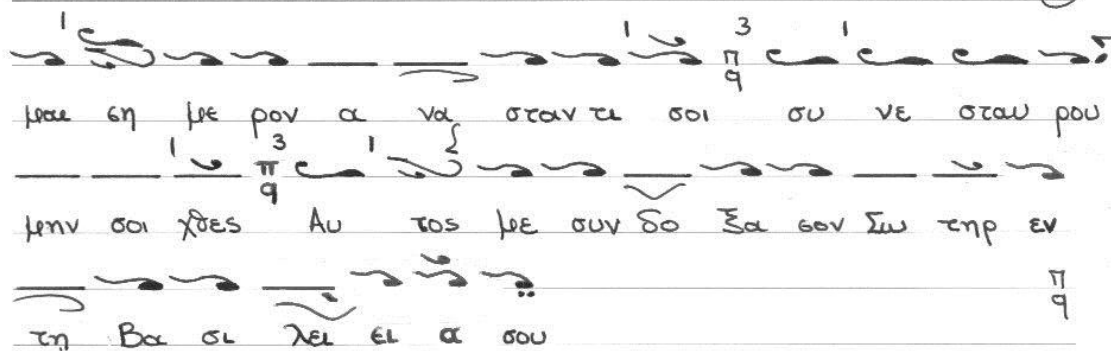 1 1 3 1
π
q
μαι ση με ρον α να σταν τι σοι συ νε σταυ ρου
1 3 1
π
q
μην σοι χθες Αυ τος με συν δο ξα σον Σω τηρ εν
π
q
τη Βα σι λει ει α σου